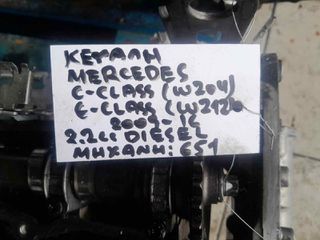 ΚΕΦΑΛΗ
MERCEDES
C-CLASS (W204)
E-CLASS (W212)
2007-15
2.2cc DIESEL
ΜΗΧΑΝΗ: 651